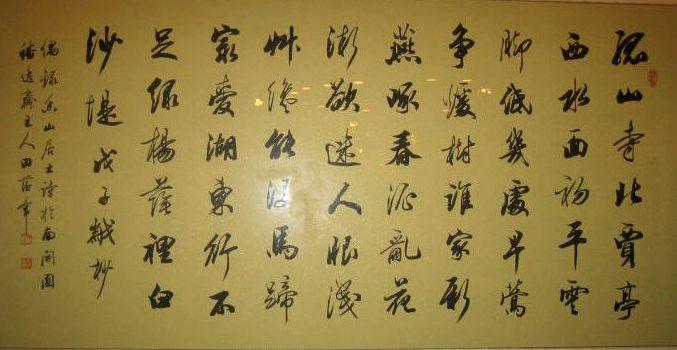 孤山寺北賈亭
西水面初平雲
脚低幾處早鶯
争暖樹誰家新
燕啄春泥亂花
漸欲迷人眼淺
艸纔能没馬蹄
最愛湖東行不
足緑楊蔭裡白
沙堤戊子杪
偶録香山居士詩於南開園
遠齋主人田蘊章